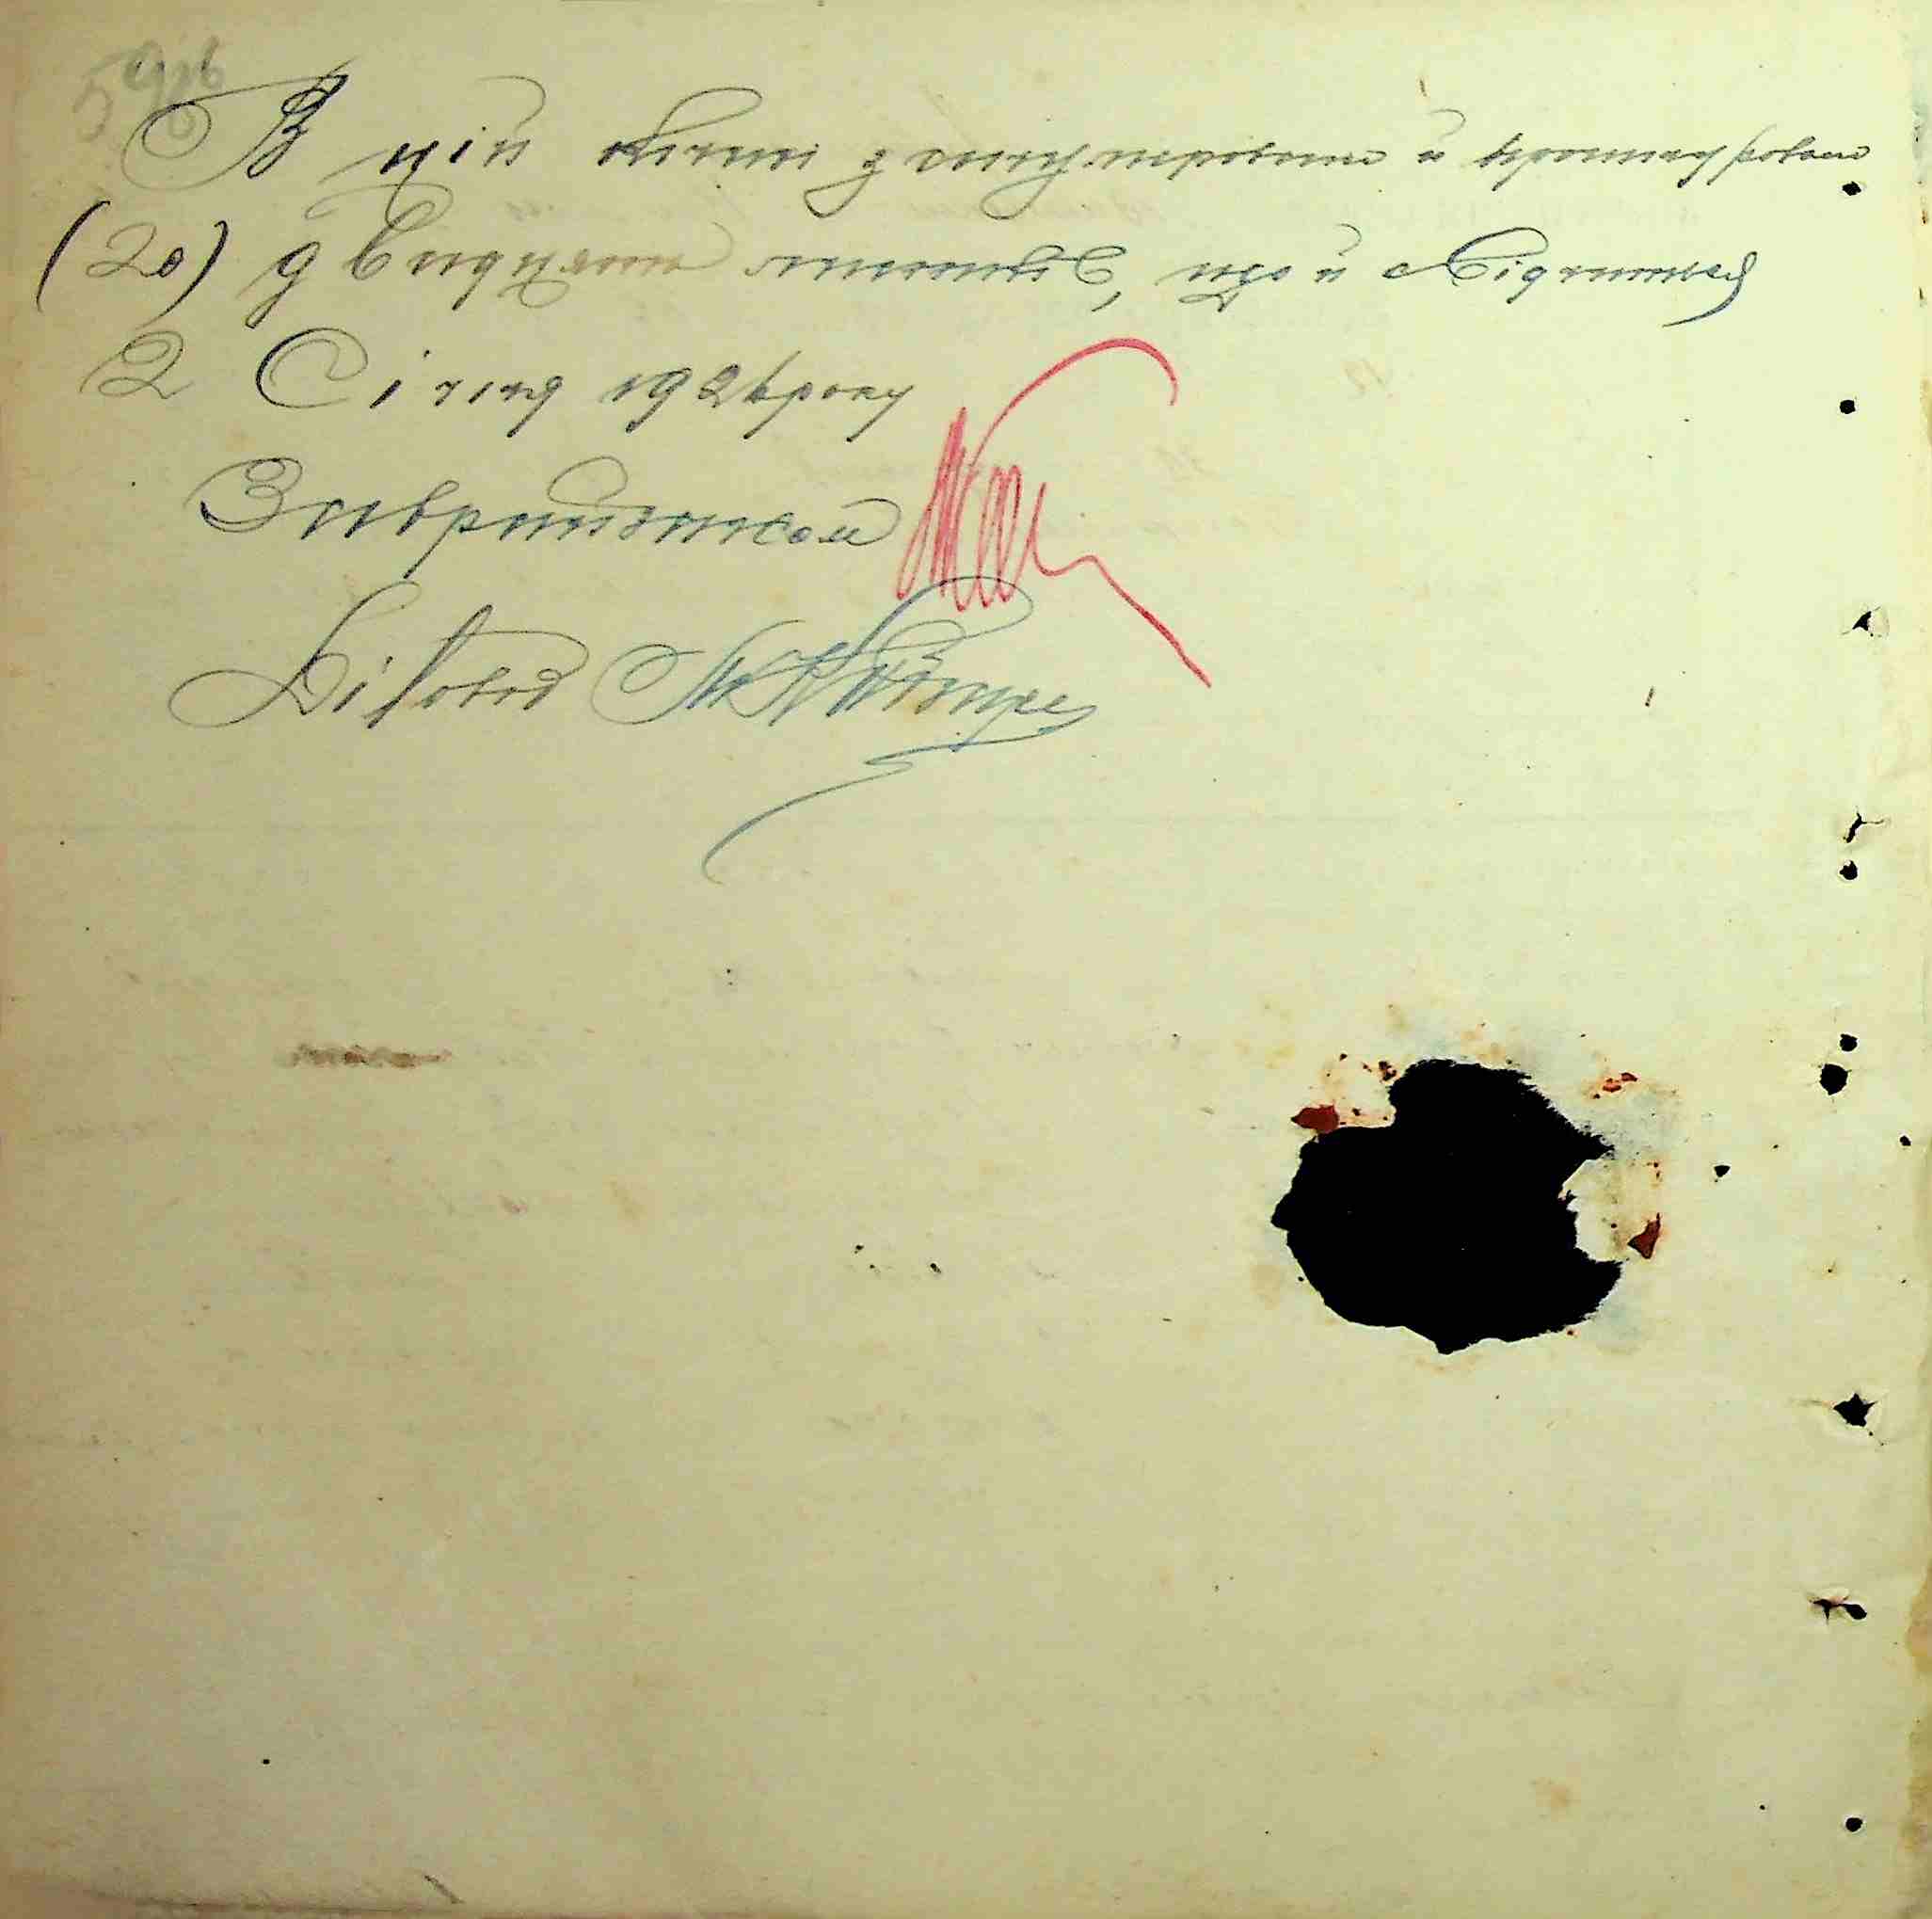 В цій книзі занумеровано й прошнуровано
(20) двадцять листків, що й свідчиться
2 Січня 1926 року
Заврайзагсом
Діловод